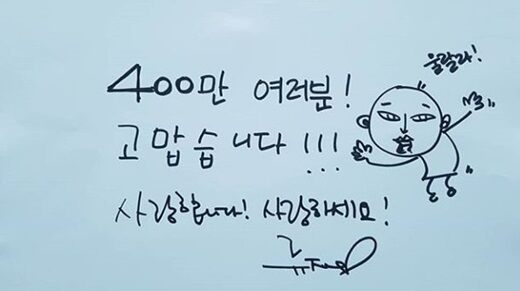 울랄라!
400만 여러분!
고맙습니다!!!
사랑합니다! 사랑하세요!